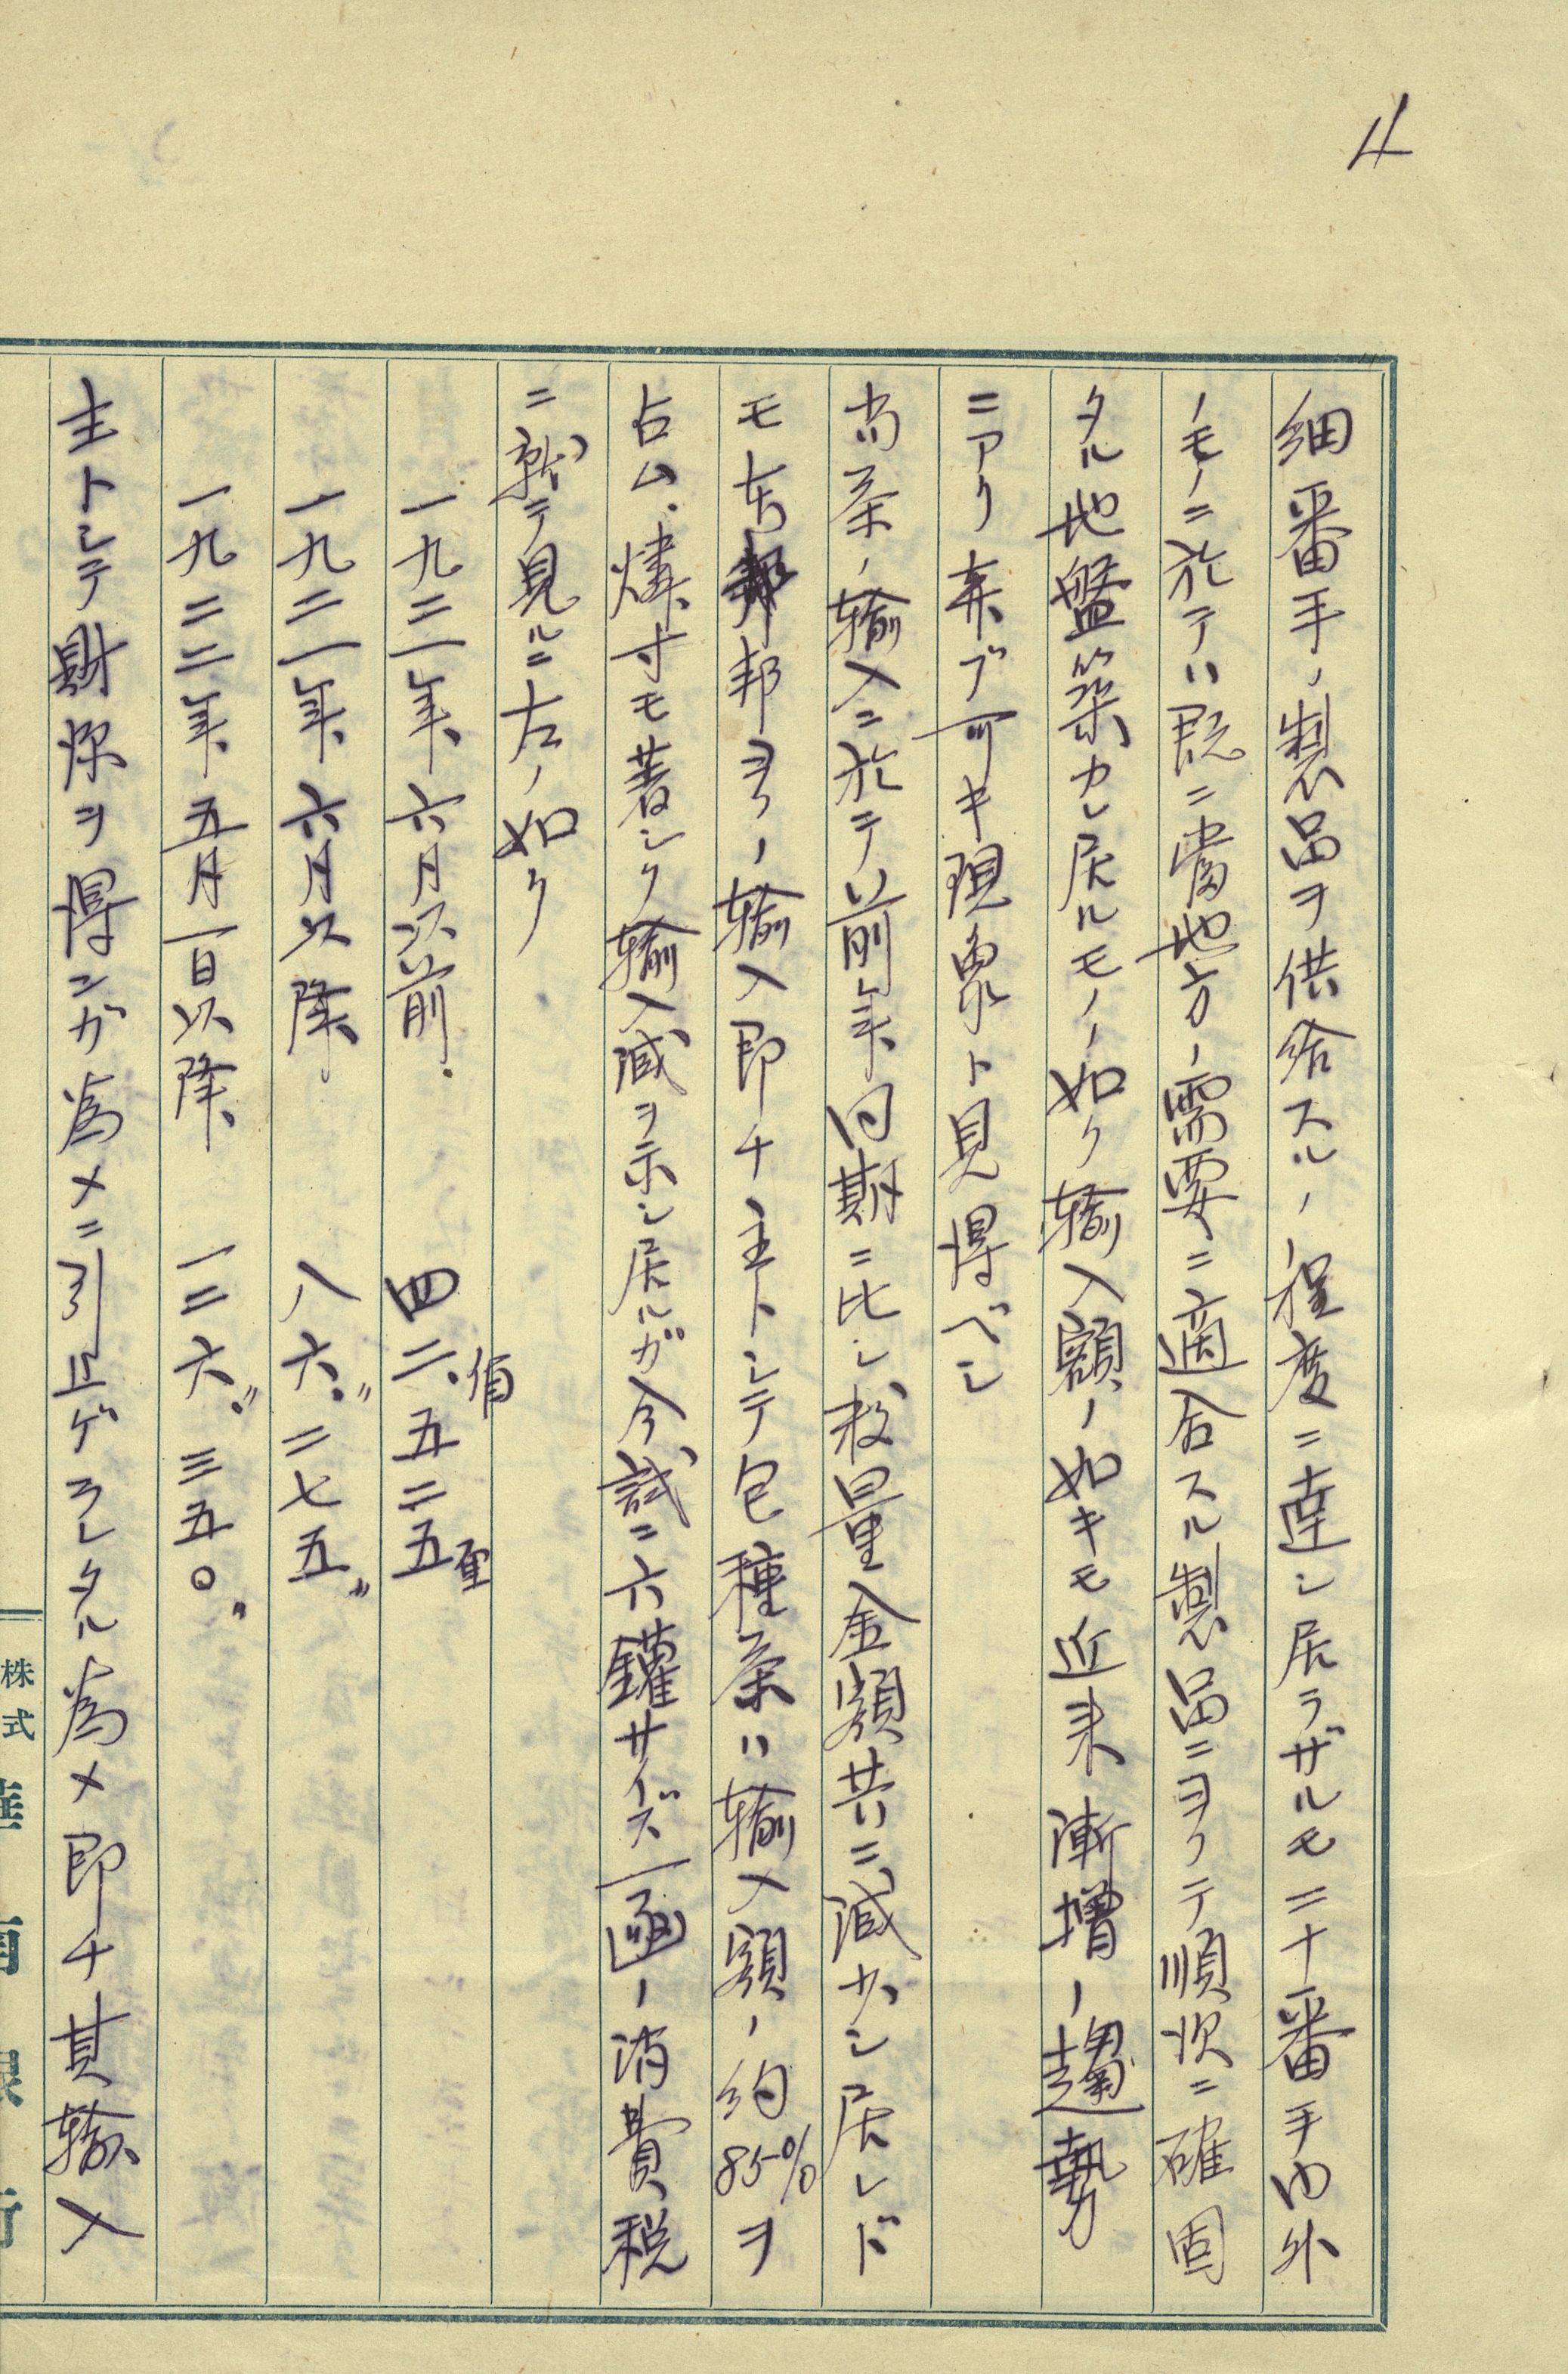 4
細番手ノ製品ヲ供給スルノ程度ニ達シ居ラザルモ二十番手内外
ノモノニ於テハ既ニ當地方ノ需要ニ適合スル製品ニヨリテ順次ニ確固
タル地盤築カレ居ルモノノ如ク輸入額ノ如キモ近来漸増ノ趨勢
ニアリ喜ブ可キ現象ト見得ベシ
尚茶ノ輸入ニ於テハ前年同期ニ比シ数量金額共ニ減少シ居レド
モ本邦ヨリノ輸入即チ主トシテ包種茶ハ輸入額ノ約85%ヲ
占ム、燐寸モ著シク輸入減ヲ示シ居ルガ今試ニ六鑵サイズ一函ノ消費税
ニ就テ見ルニ左ノ如ク
一九二一年六月以前 四二盾、五二五
一九二一年六月以降 八六〃、二七五〃
一九二二年五月一日以降 一二六〃、三五〇〃
主トシテ財源ヲ得ンガ為メニ引上ゲラレタル為メ即チ其輸入
株式 華南銀行